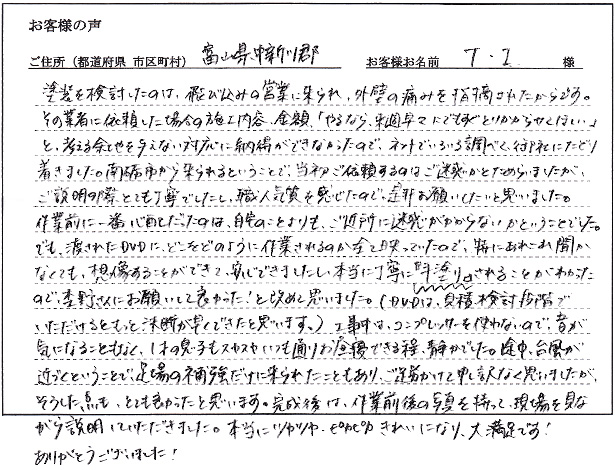 お客様の声
ご住所（都道府県 市区町村） 富山県中新川郡 お客様お名前 T・I 様
塗装を検討したのは、飛び込みの営業に来られ、外壁の痛みを指摘されたからです。
その業者に依頼した場合の施工内容、金額、「やるなら、来週早々にでもとりかからせてほしい」
と、考える余地を与えない対応に納得ができなかったので、ネットでいろいろ調べて、御社にたどり
着きました。南砺市から来られるということで、当初ご依頼するのはご迷惑かとためらいましたが、
ご説明の際とても丁寧でしたし、職人気質を感じたので、是非お願いしたいと思いました。
作業前に一番心配だったのは、自宅のことよりも、ご近所に迷惑がかからないかということでした。
でも、渡されたDVDに、どこをどのように作業されるのか全て映っていたので、特にあれこれ聞か
なくても、想像することができて、安心できましたし、本当に丁寧に手塗りされることがわかった
ので、さんにお願いして良かった！と改めて思いました。（DVDは、見積検討段階で
いただけるともっと決断が早くできたと思います。）工事は、コンプレッサーを使わないので、音が
気になることもなく、1才の息子もスヤスヤいつも通りお昼寝できる程、静かでした。途中、台風が
近づくということで、足場の補強だけに来られたこともあり、ご足労かけて申し訳なく思いましたが、
そうした点も、とても良かったと思います。完成後は、作業前後の写真を持って、現場を見な
がら説明していただきました。本当にツヤツヤ・ピカピカきれいになり、大満足です！
ありがとうございました！